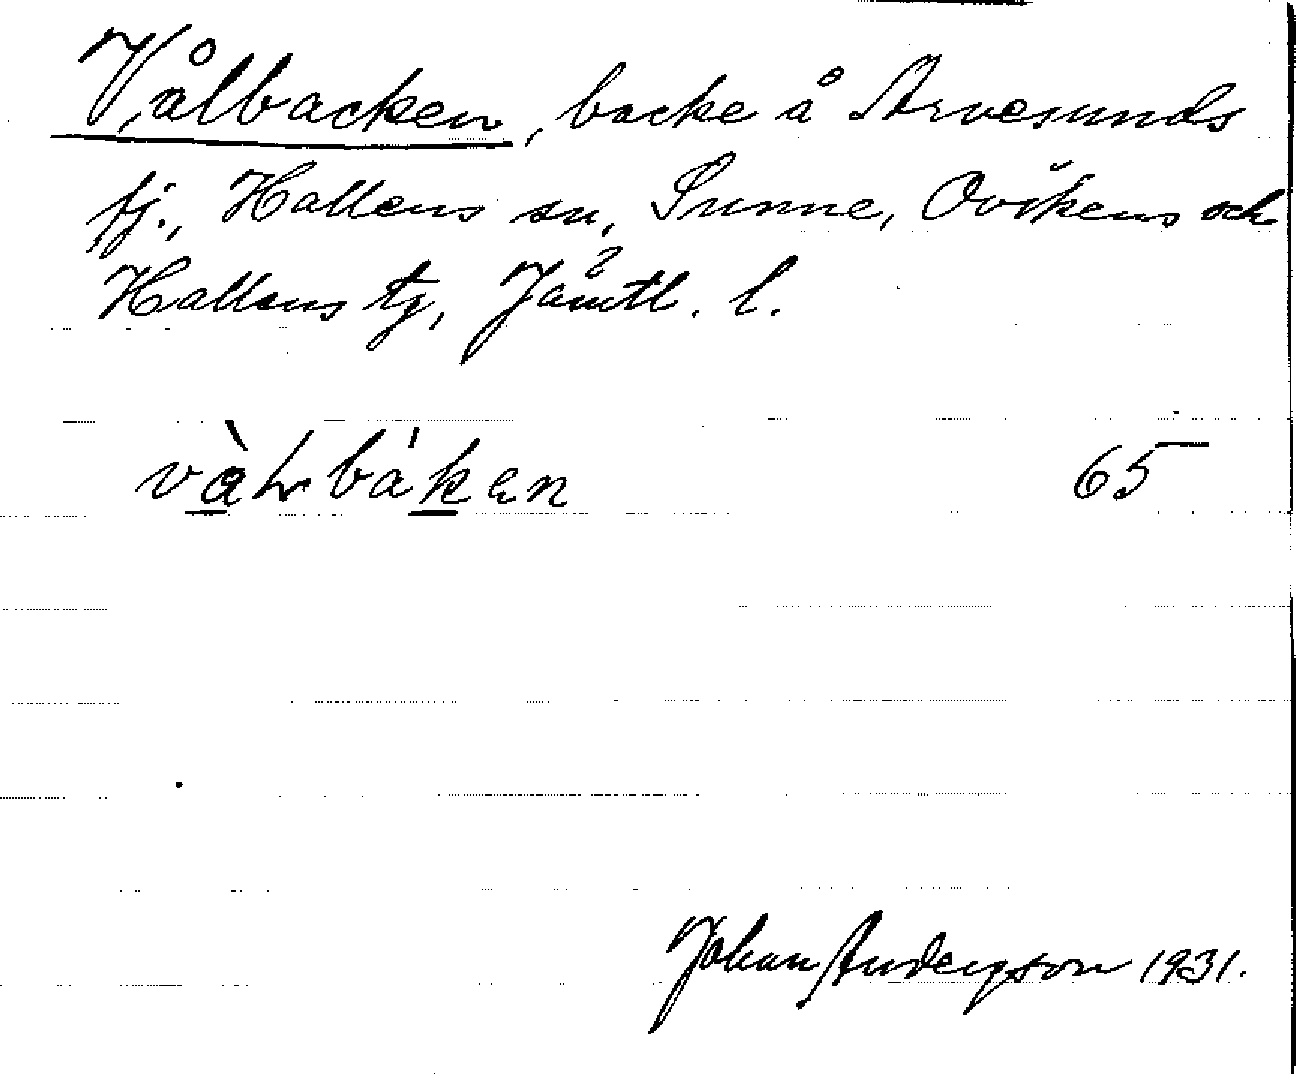 Vålbacken, backe å Arvesunds
fj., Hallens sn, Sunne, Ovikens och
Hallens tg, Jämtl. l.
65
Johan Anderson 1931.